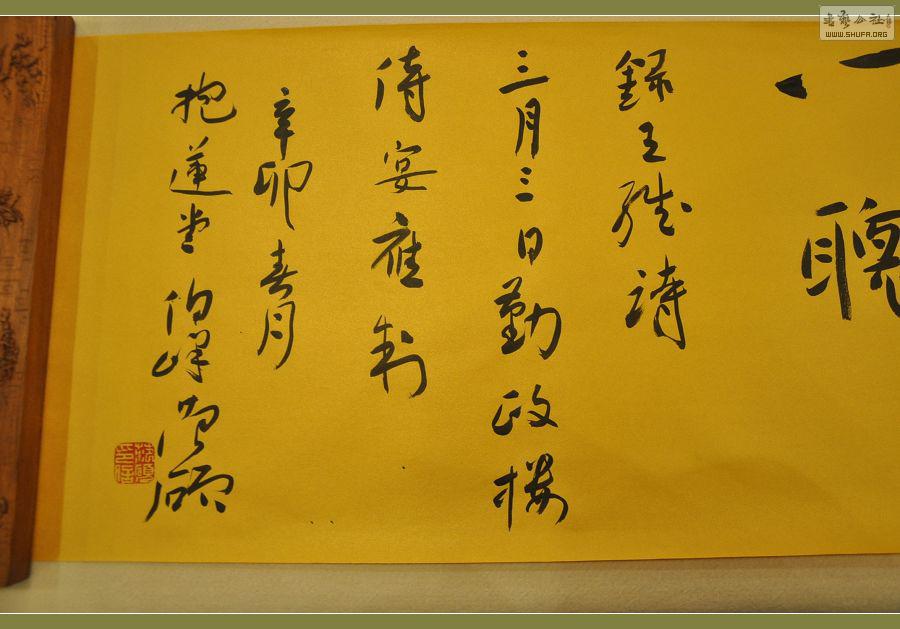 聰
錄王維詩
三月三日勤政樓
侍宴應制
辛卯春月
抱蓮堂伯
書藝公社
WWW.SHUFA.ORG